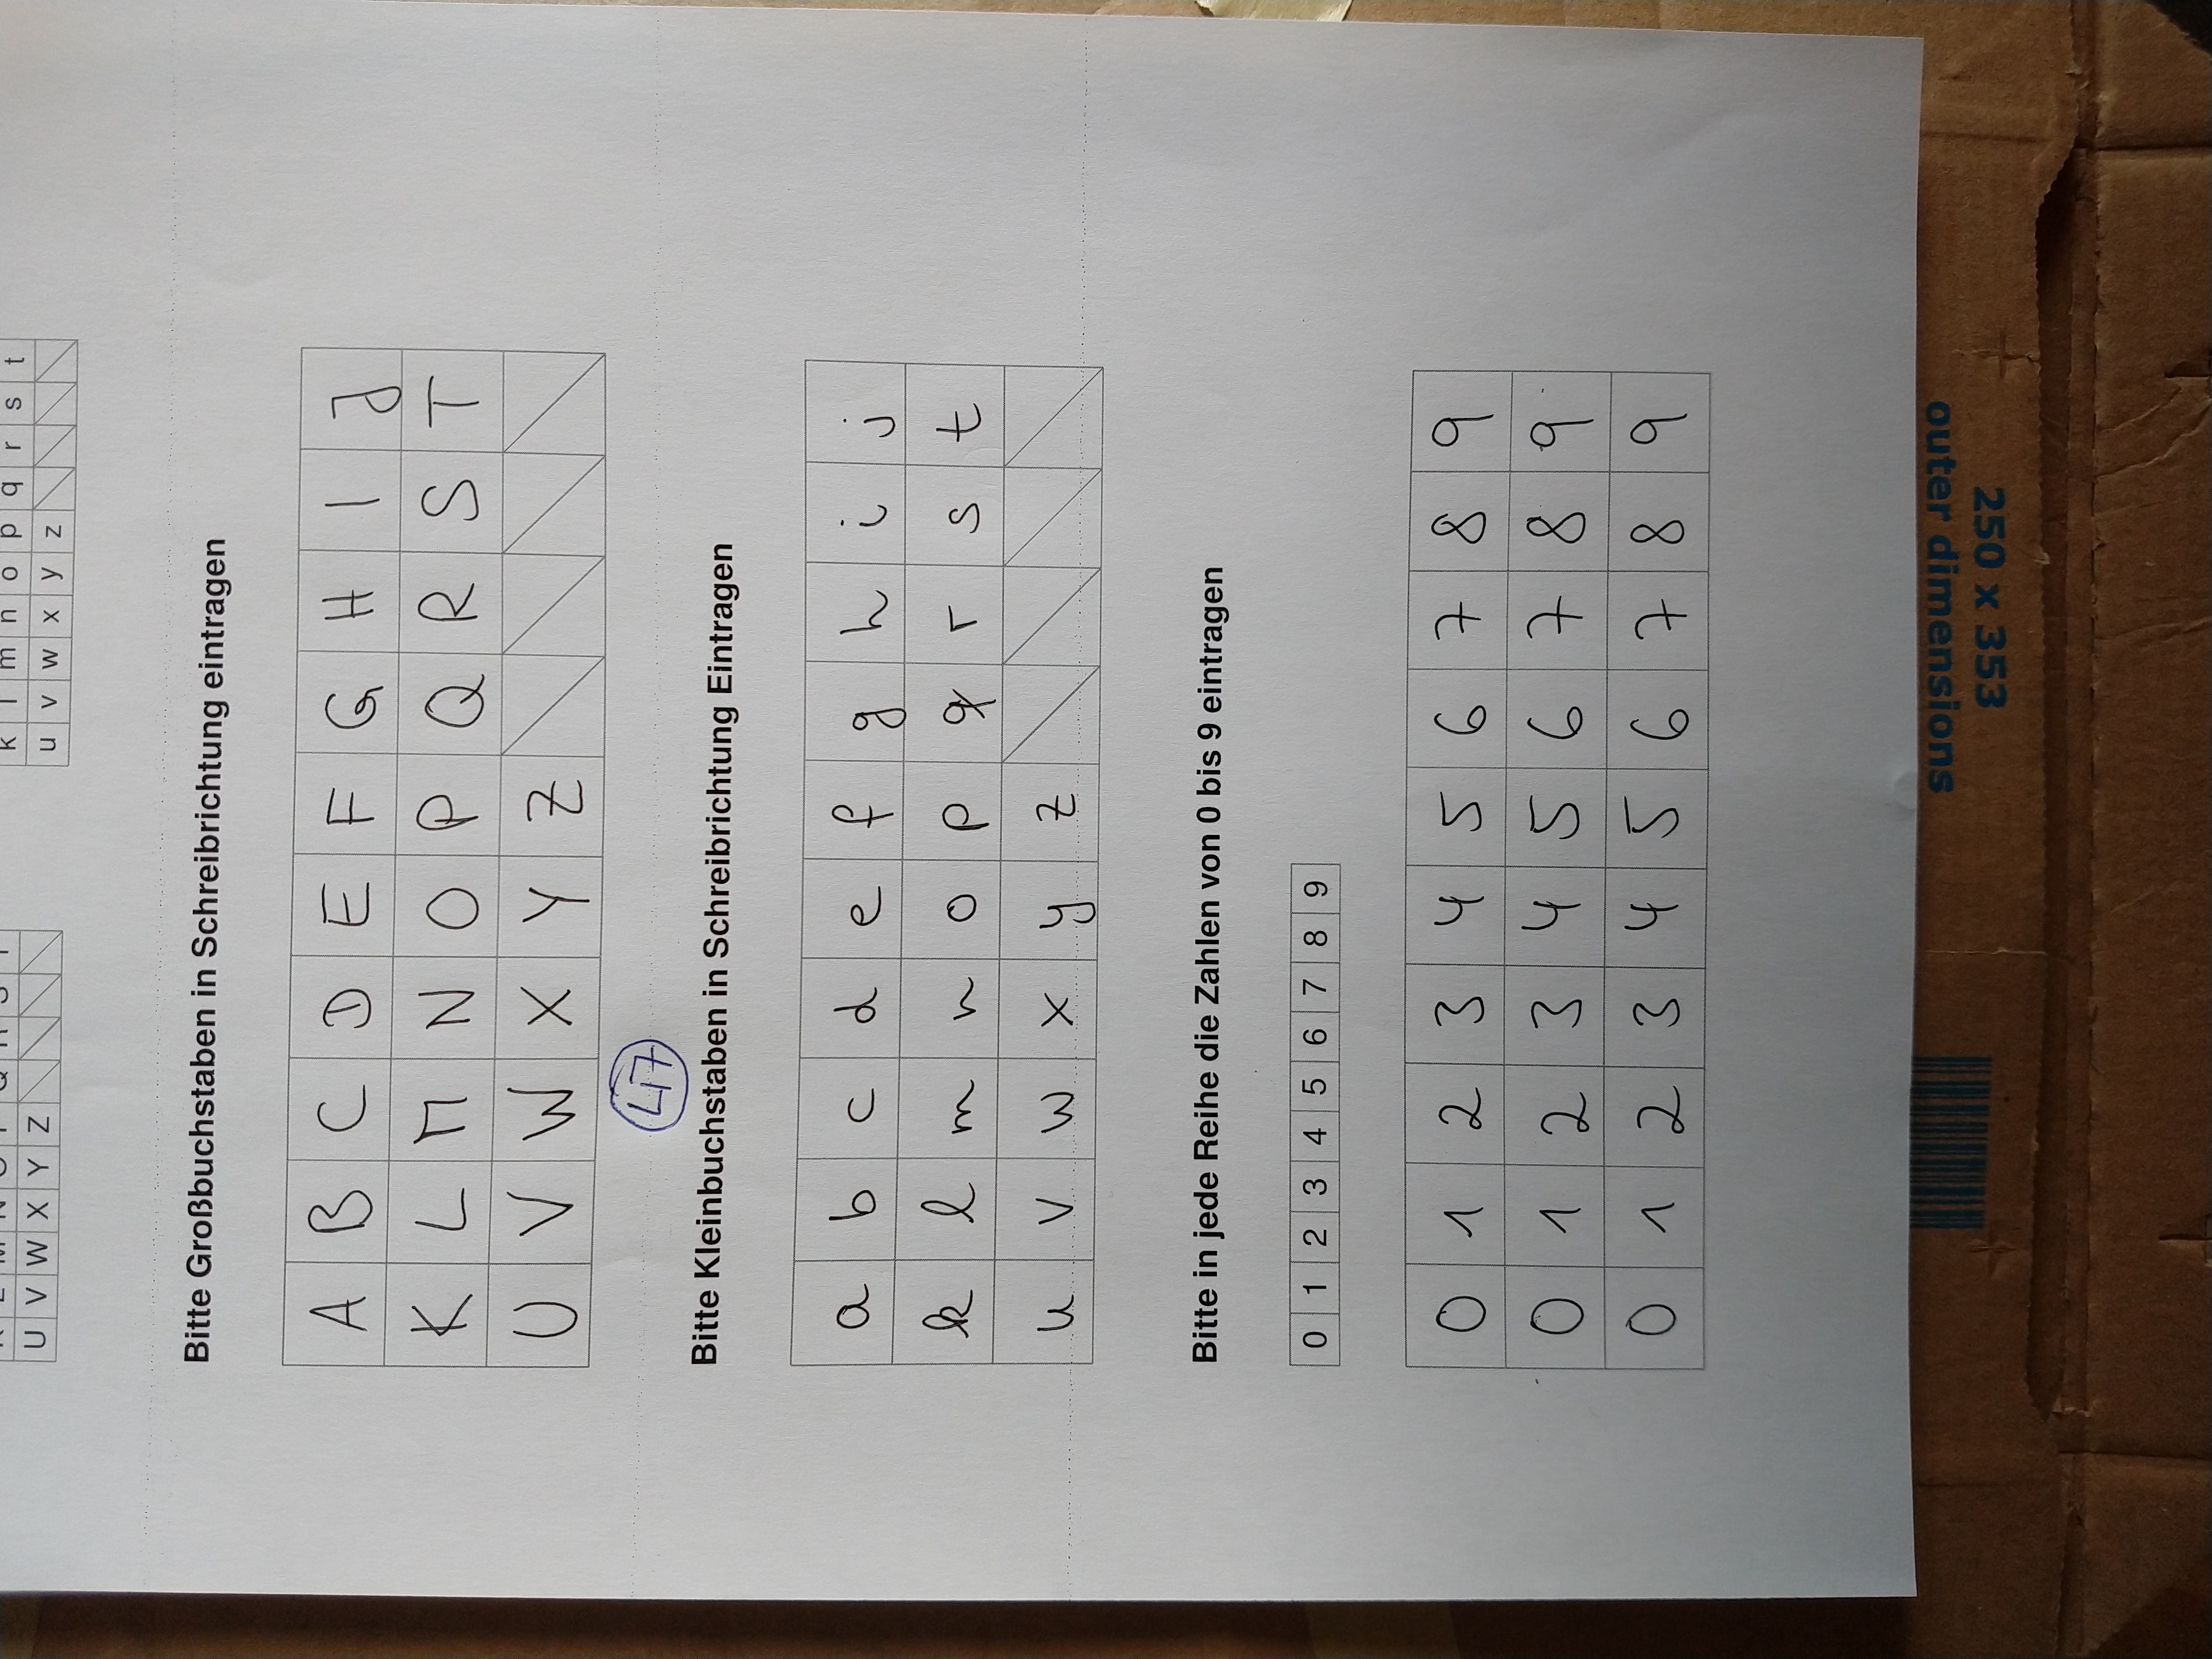 K L M N O P Q R S T
U V W X Y Z
k l m n o p q r s t
u v w x y z
Bitte Großbuchstaben in Schreibrichtung eintragen
A B C D E F G H I J
K L M N O P Q R S T
U V W X Y Z
47
Bitte Kleinbuchstaben in Schreibrichtung Eintragen
a b c d e f g h i j
k l m n o p q r s t
u v w x y z
Bitte in jede Reihe die Zahlen von 0 bis 9 eintragen
0 1 2 3 4 5 6 7 8 9
0 1 2 3 4 5 6 7 8 9
0 1 2 3 4 5 6 7 8 9
0 1 2 3 4 5 6 7 8 9
250 x 353
outer dimensions